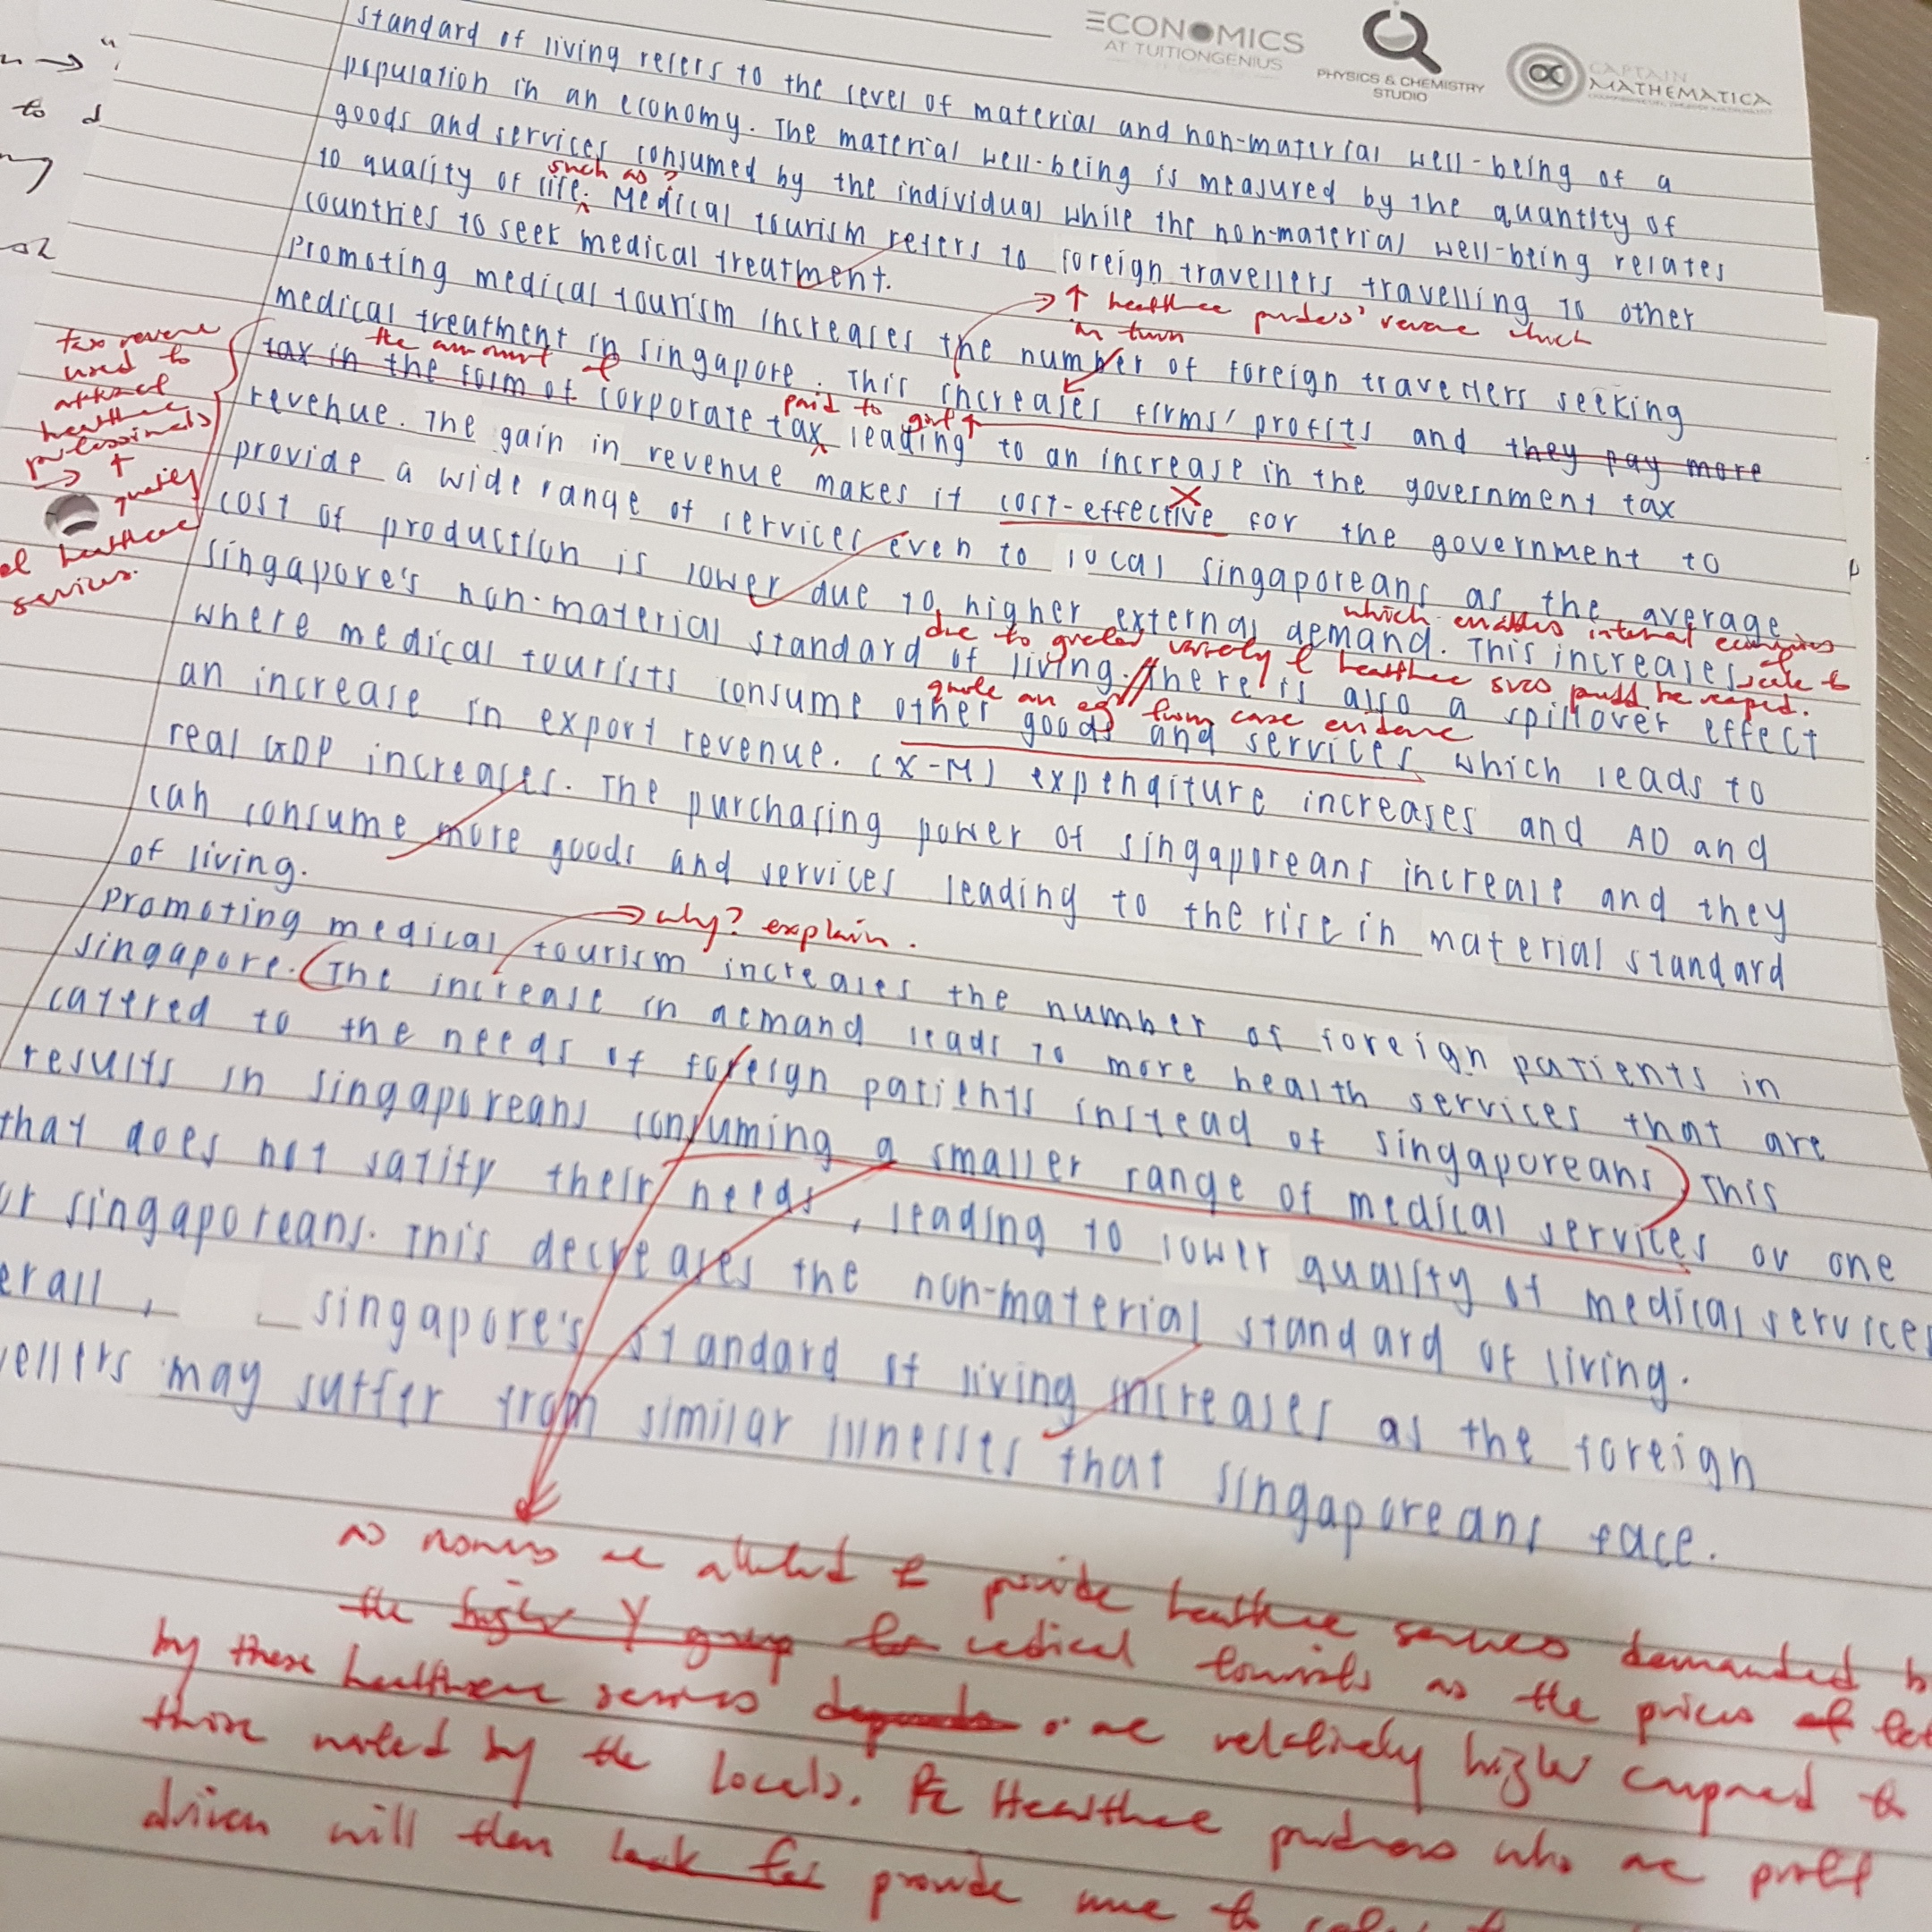 ECONOMICS
AT TUITIONGENIUS
PHYSICS & CHEMISTRY
STUDIO
CAPTAIN
MATHEMATICA
standard of living refers to the level of material and non-material well-being of a
population in an economy. The material well-being is measured by the quantity of
goods and services consumed by the individual while the non-material well-being relates
such as?
to quality of life. Medical tourism refers to foreign travellers travelling to other
countries to seek medical treatment.
→ ↑ healthcare providers' revenue which
in turn
Promoting medical tourism increases the number of foreign travellers seeking
medical treatment in singapore. This increases firms' profits and they pay more
the amount of
tax in the form of corporate tax leading to an increase in the government tax
paid to govt ↑
revenue. The gain in revenue makes it cost-effective for the government to
provide a wide range of services even to local singaporeans as the average
cost of production is lower due to higher external demand. This increases
which enables internal economies of scale to be reaped.
singapore's non-material standard of living. There is also a spillover effect
due to greater variety of healthcare svcs
where medical tourists consume other goods and services which leads to
quote an eg from case evidence
an increase in export revenue. (X-M) expenditure increases and AD and
real GDP increases. The purchasing power of singaporeans increase and they
can consume more goods and services leading to the rise in material standard
of living.
tax revenue
used to
attract
healthcare
professionals
→ ↑
quality
of healthcare
services.
→ why? explain.
Promoting medical tourism increases the number of foreign patients in
singapore. (The increase in demand leads to more health services that are
catered to the needs of foreign patients instead of singaporeans) This
results in singaporeans consuming a smaller range of medical services or one
that does not satify their needs, leading to lower quality of medical services
singaporeans. This decreases the non-material standard of living.
singapore's standard of living increases as the foreign
may suffer from similar illnesses that singaporeans face.
provide healthcare services demanded
the higher Y group medical tourists as the prices of
by these healthcare services depends are relatively higher compared to
those by the locals. Healthcare providers who are profit
driven will then look for provide more to